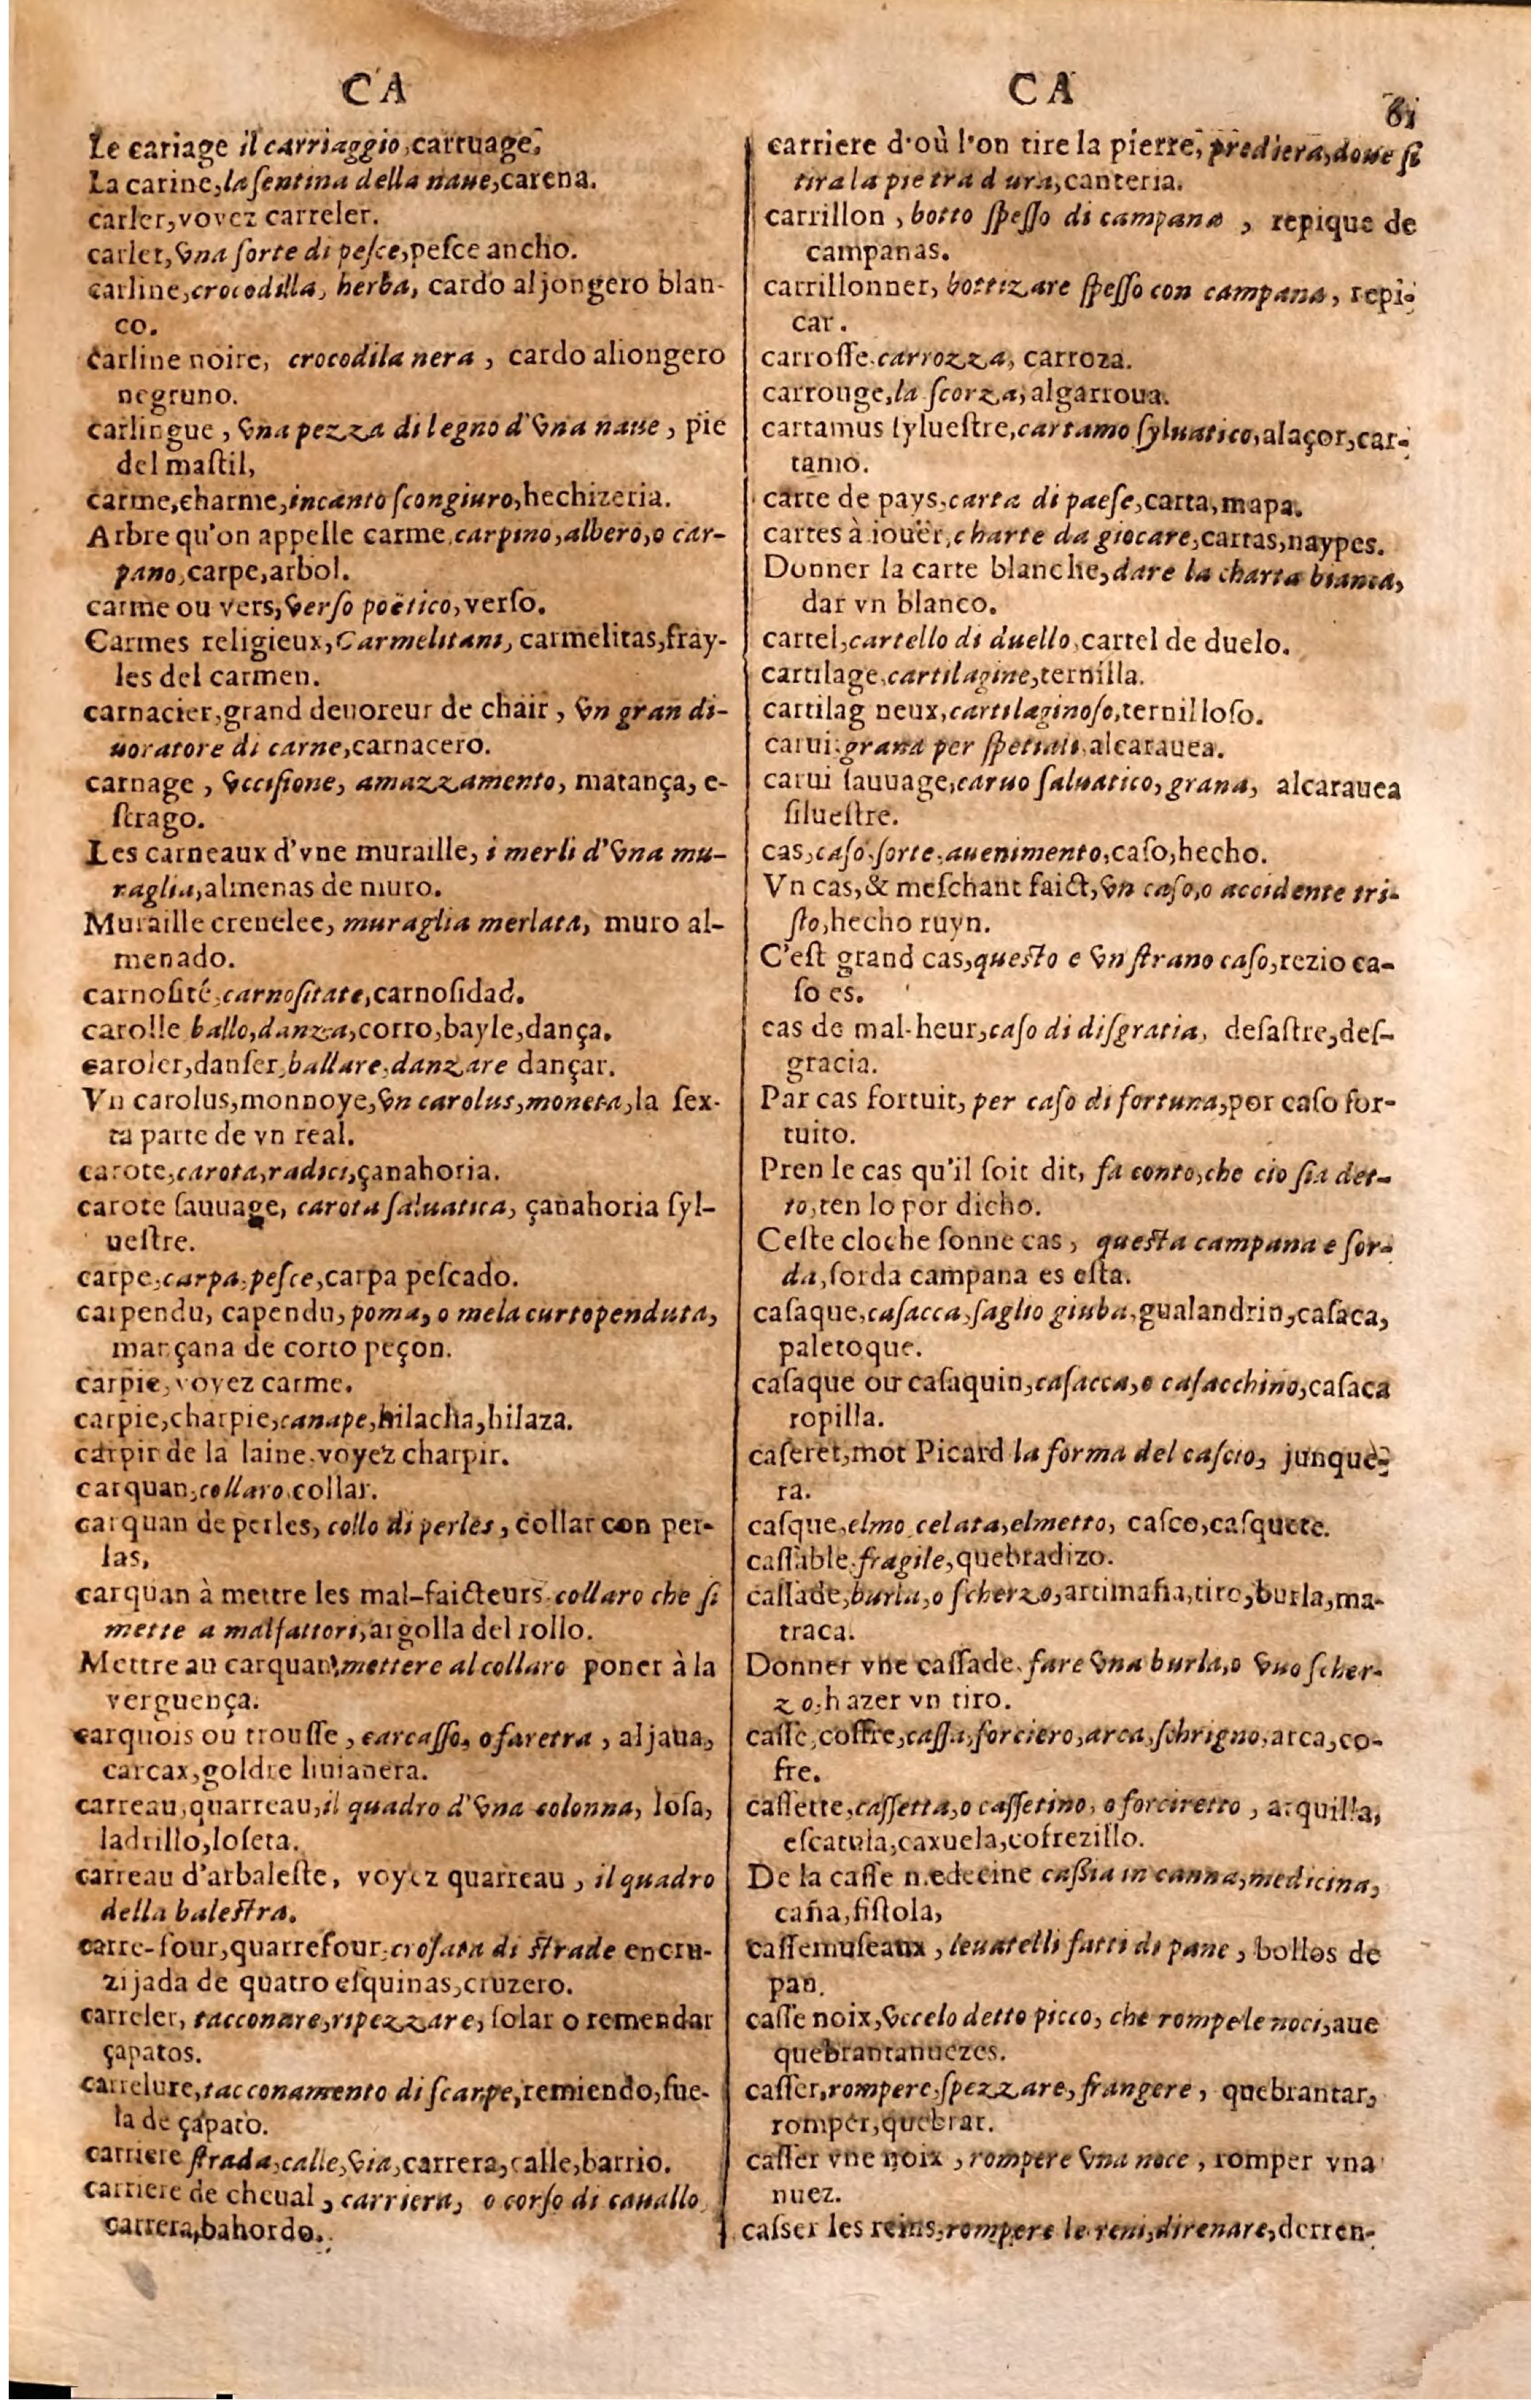 CA
Le cariage il carriaggio, carruage.
La carine, la ſentina della naue, carena.
carler, voyez carreler.
carlet, vna ſorte di peſce, peſce ancho.
carline, crocodilla, herba, cardo aljongero blan-
co.
carline noire, crocodila nera, cardo aliongero
negruno.
carlingue, vna pezza di legno d'vna naue, pie
del maſtil,
carme, charme, incanto ſcongiuro, hechizeria.
Arbre qu'on appelle carme, carpino, albero, o car-
pano, carpe, arbol.
carme ou vers, verſo poëtico, verſo.
Carmes religieux, Carmelitani, carmelitas, fray-
les del carmen.
carnacier, grand deuoreur de chair, vn gran di-
uoratore di carne, carnacero.
carnage, vcciſione, amazzamento, matança, e-
ſtrago.
Les carneaux d'vne muraille, i merli d'vna mu-
raglia, almenas de muro.
Muraille crenelee, muraglia merlata, muro al-
menado.
carnoſité, carnoſitate, carnoſidad.
carolle ballo, danza, corro, bayle, dança.
caroler, danſer, ballare, danzare dançar.
Vn carolus, monnoye, vn carolus, moneta, la ſex-
ta parte de vn real.
carote, carota, radici, çanahoria.
carote ſauuage, carota ſaluatica, çanahoria ſyl-
ueſtre.
carpe, carpa, peſce, carpa peſcado.
carpendu, capendu, poma, o mela curtopenduta,
mançana de corto peçon.
carpie, voyez carme.
carpie, charpie, canape, hilacha, hilaza.
carpir de la laine, voyez charpir.
carquan, collaro, collar.
carquan de perles, collo di perles, collar con per-
las,
carquan à mettre les mal-faicteurs, collaro che ſi
mette a malfattori, argolla del rollo.
Mettre au carquan, mettere al collaro poner à la
verguença.
carquois ou trouſſe, carcaſſo, o faretra, aljaua,
carcax, goldre liuianera.
carreau, quarreau, il quadro d'vna colonna, loſa,
ladrillo, loſeta.
carreau d'arbaleſte, voyez quarreau, il quadro
della baleſtra.
carre-four, quarrefour, croſata di ſtrade encru-
zijada de quatro eſquinas, cruzero.
carreler, tacconare, ripezzare, ſolar o remendar
çapatos.
carrelure, tacconamento di ſcarpe, remiendo, ſue-
la de çapato.
carriere ſtrada, calle, via, carrera, calle, barrio.
carriere de cheual, carriera, o corſo di cauallo,
carrera, bahordo.
CA
81
carriere d'où l'on tire la pierre, prediera, doue ſi
tira la pietra dura, canteria.
carrillon, botto ſpeſſo di campana, repique de
campanas.
carrillonner, bottizare ſpeſſo con campana, repi-
car.
carroſſe, carrozza, carroza.
carrouge, la ſcorza, algarroua.
cartamus ſylueſtre, cartamo ſyluatico, alaçor, car-
tamo.
carte de pays, carta di paeſe, carta, mapa.
cartes à iouër, charte da giocare, cartas, naypes.
Donner la carte blanche, dare la charta bianca,
dar vn blanco.
cartel, cartello di duello, cartel de duelo.
cartilage, cartilagine, ternilla.
cartilag neux, cartilaginoſo, ternilloſo.
carui, grana per ſpetiali, alcarauea.
carui ſauuage, caruo ſaluatico, grana, alcarauea
ſilueſtre.
cas, caſo, ſorte, auenimento, caſo, hecho.
Vn cas, & meſchant faict, vn caſo, o accidente tri-
ſto, hecho ruyn.
C'eſt grand cas, queſto e vn ſtrano caſo, rezio ca-
ſo es.
cas de mal-heur, caſo di diſgratia, deſaſtre, deſ-
gracia.
Par cas fortuit, per caſo di fortuna, por caſo for-
tuito.
Pren le cas qu'il ſoit dit, fa conto, che cio ſia det-
to, ten lo por dicho.
Ceſte cloche ſonne cas, queſta campana e ſor-
da, ſorda campana es eſta.
caſaque, caſacca, ſaglio giuba, gualandrin, caſaca,
paletoque.
caſaque ou caſaquin, caſacca, o caſacchino, caſaca
ropilla.
caſeret, mot Picard la forma del caſcio, junque-
ra.
caſque, elmo, celata, elmetto, caſco, caſquete.
caſſable, fragile, quebradizo.
caſſade, burla, o ſcherzo, artimaña, tiro, burla, ma-
traca.
Donner vne caſſade, fare vna burla, o vno ſcher-
zo, hazer vn tiro.
caſſe, coffre, caſſa, forciero, arca, ſchrigno, arca, co-
fre.
caſſette, caſſetta, o caſſetino, o forciretto, arquilla,
eſcatula, caxuela, cofrezillo.
De la caſſe medecine caßia in canna, medicina,
caña, fiſtola,
caſſemuſeaux, leuatelli fatti di pane, bollos de
pan.
caſſe noix, vccelo detto picco, che rompe le noci, aue
quebrantanuezes.
caſſer, rompere, ſpezzare, frangere, quebrantar,
romper, quebrar.
caſſer vne noix, rompere vna noce, romper vna
nuez.
caſſer les reins, rompere le reni, direnare, derren-